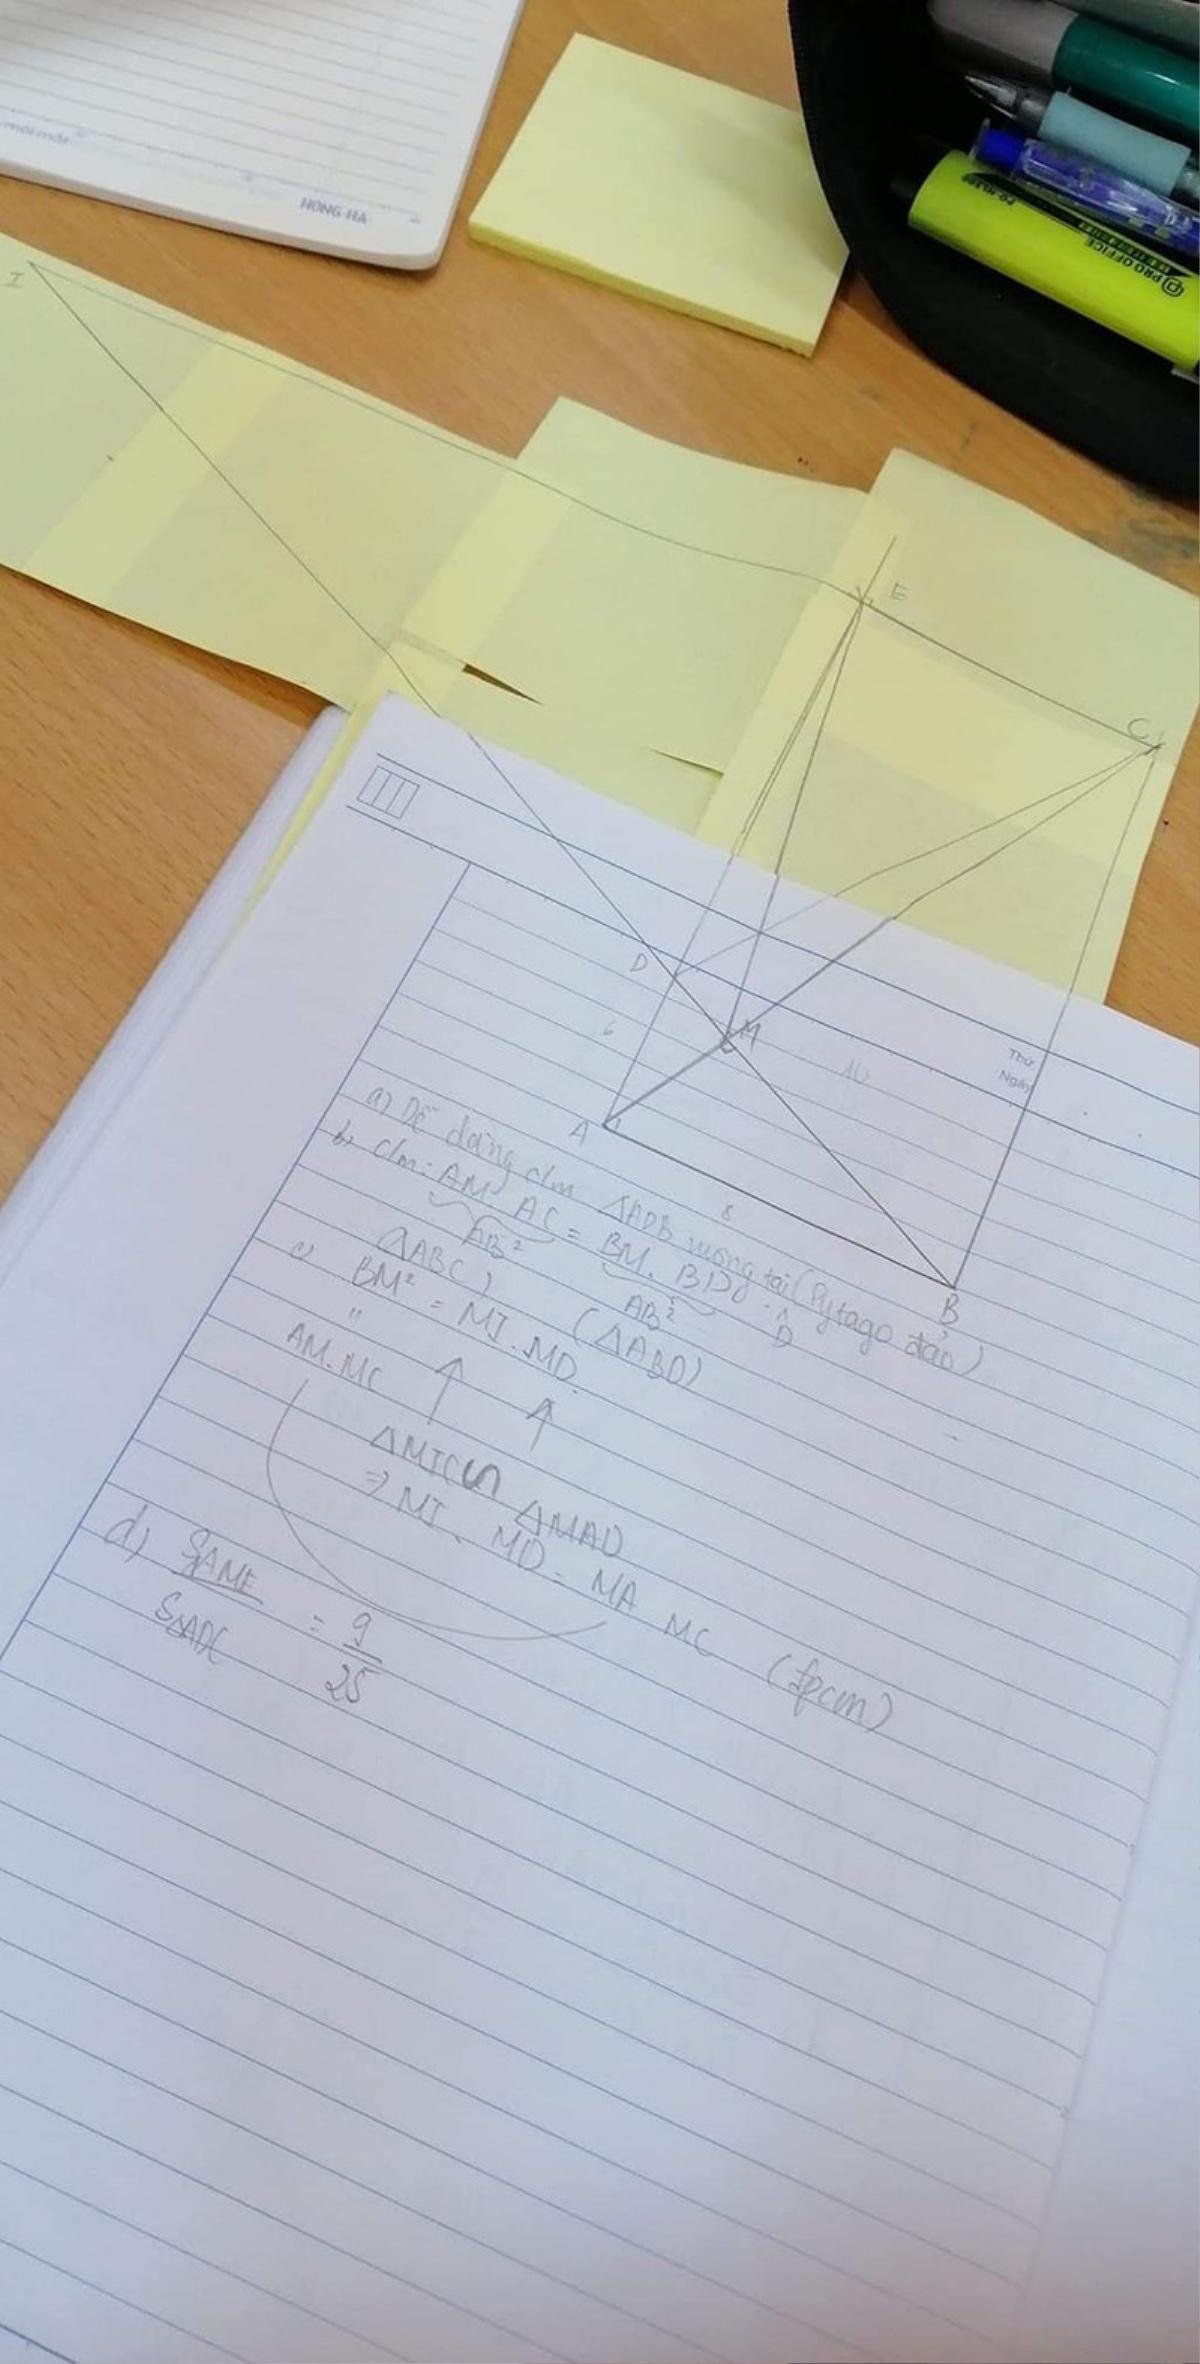 HONG HA
PRO OFFICE
I
E
C
D
M
6
10
Thứ
Ngày
A
8
B
a) Dễ dàng c/m △ADB vuông tại (Pytago đảo)
b, c/m: AM. AC = BM. BD
AB² AB²
(△ABC) (△ABD)
c) BM² = MI.MD
"
AM.MC
△MIC ∽ △MAD
⇒ MI. MD = MA MC (đpcm)
d) S△AME = 9
S△ADC 25